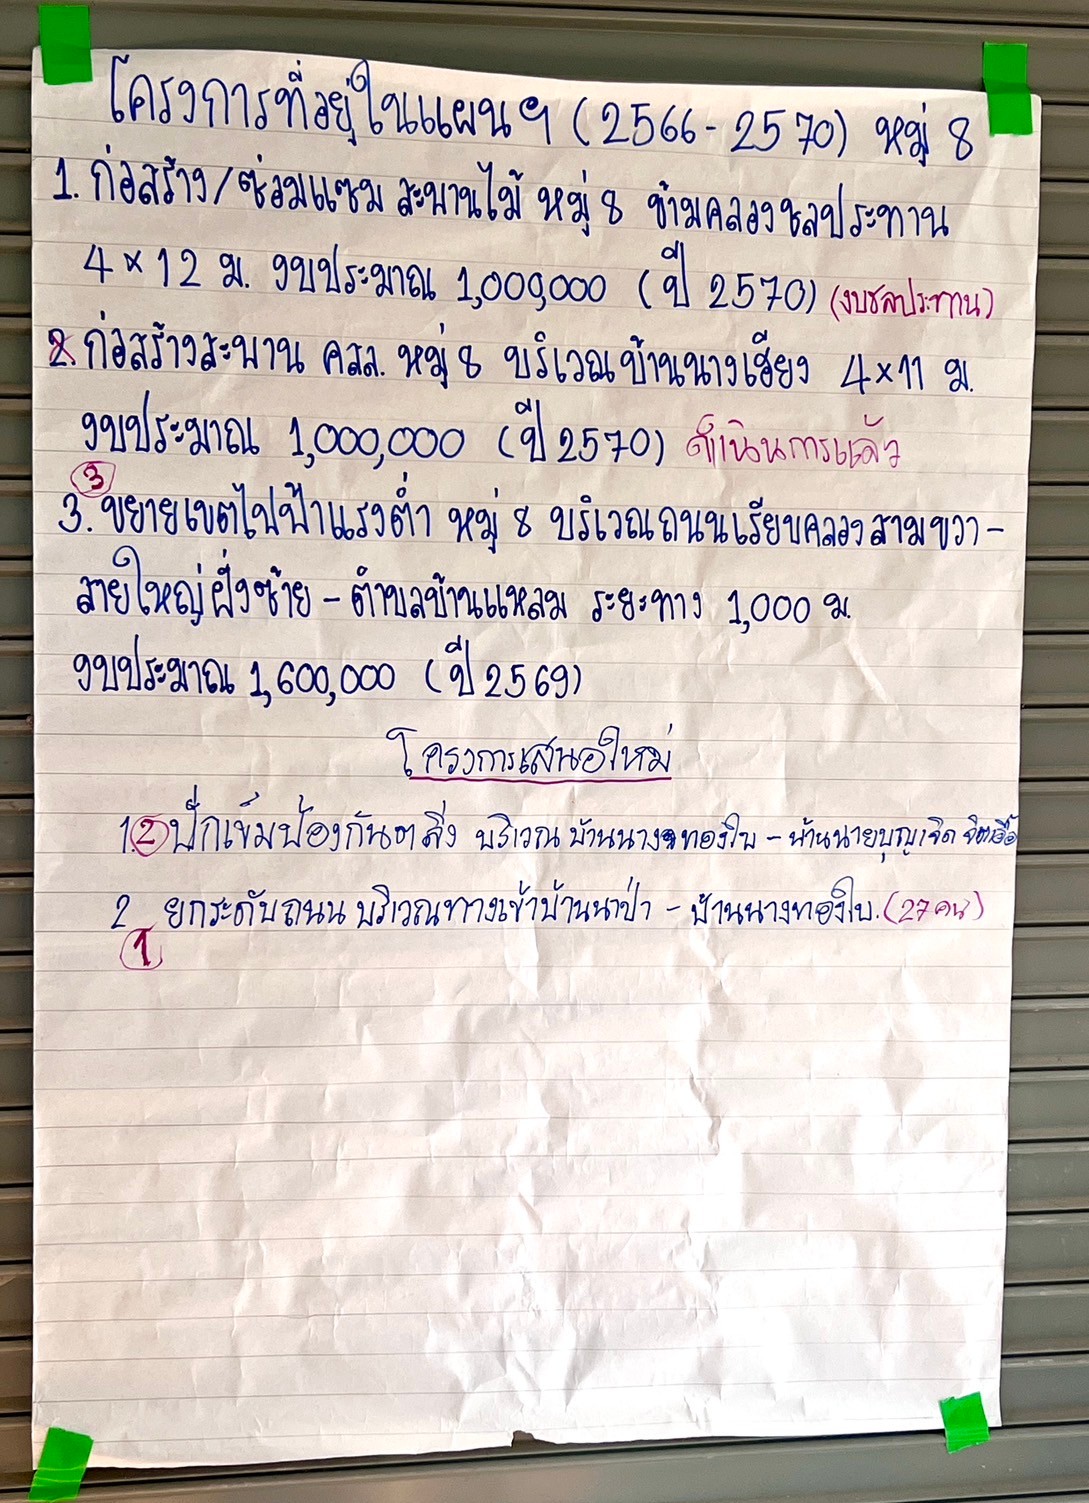 โครงการที่อยู่ในแผนฯ (2566-2570) หมู่ 8
1. ก่อสร้าง/ซ่อมแซม สะพานไม้ หมู่ 8 ข้ามคลองชลประทาน
4×12 ม. งบประมาณ 1,000,000 (ปี 2570) (งบชลประทาน)
2. ก่อสร้างสะพาน คสล. หมู่ 8 บริเวณบ้านนางเฮียง 4×11 ม.
งบประมาณ 1,000,000 (ปี 2570) ดำเนินการแล้ว
③
3. ขยายเขตไฟฟ้าแรงต่ำ หมู่ 8 บริเวณถนนเรียบคลองสามขวา -
สายใหญ่ฝั่งซ้าย - ตำบลบ้านแหลม ระยะทาง 1,000 ม.
งบประมาณ 1,600,000 (ปี 2569)
โครงการเสนอใหม่
1. ② ปักเข็มป้องกันตลิ่ง บริเวณ บ้านนางทองใบ - บ้านนายบุญเจิด
2 ยกระดับถนน บริเวณทางเข้าบ้านนาป่า - บ้านนางทองใบ. (27 คน)
①